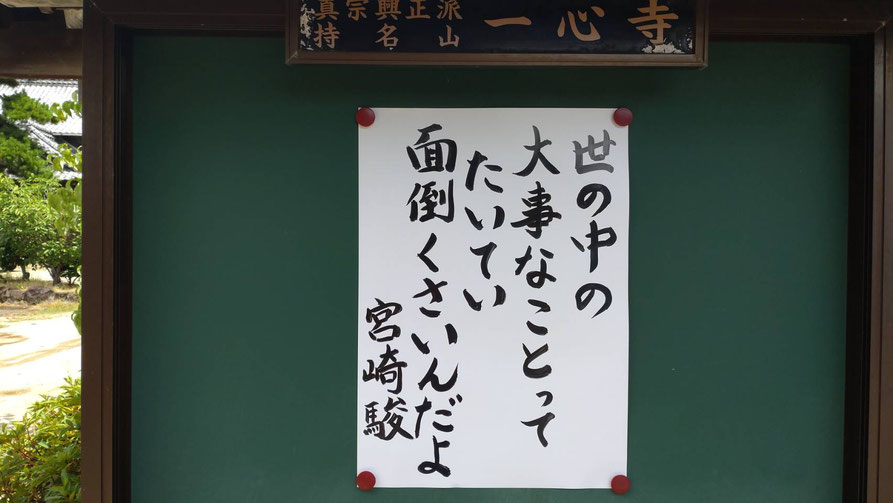 真宗興正派
持名山
一心寺
世の中の
大事なことって
たいてい
面倒くさいんだよ
宮崎駿